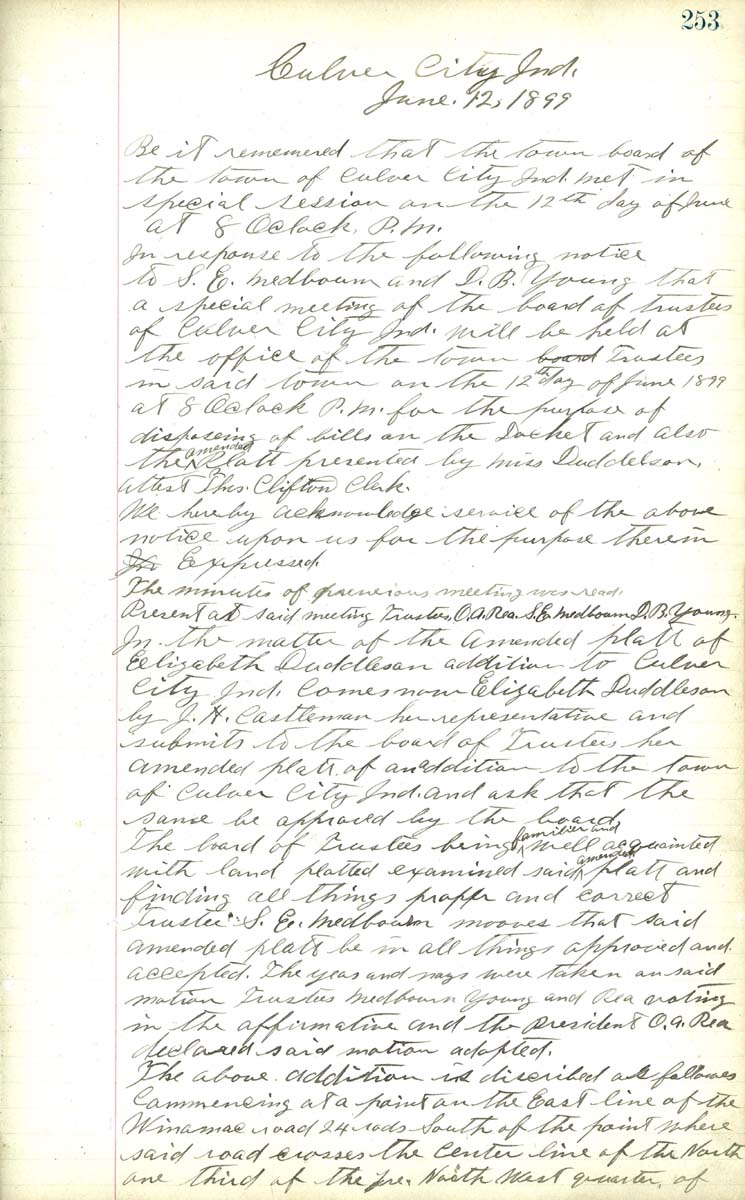 253
Culver City Ind.
June. 12, 1899
Be it rememered that the town board of
the town of Culver City Ind. met in
special session on the 12th day of June
at 8 Oclock. P.M.
In response to the following notice
to S. E. Medbourn and D. B. Young that
a special meeting of the board of trustees
of Culver City Ind. will be held at
the office of the town board Trustees
in said town on the 12th day of June 1899
at 8 Oclock P.M. for the purpose of
disposeing of bills on the Docket and also
the amended Platt presented by Miss Duddelson.
attest Thos. Clifton Clerk.
We hereby acknowledge service of the above
notice upon us for the purpose therein
In Eexpressed.
The minutes of previous meeting was read.
Present at said meeting Trustees, O.A. Rea. S.E. Medbourn D.B. Young.
In the matter of the amended platt of
Eelizabeth Duddleson addition to Culver
City Ind. Comes now Elizabeth Duddleson
by J. H. Castleman her representative and
submits to the board of Trustees her
amended platt of an addition to the town
of Culver City Ind. and ask that the
same be approved by the board.
The board of Trustees being familier and well acquainted
with land platted examined said amended platt and
finding all things proper and correct
Trustee S. E. Medbourn mooves that said
amended platt be in all things approved and
accepted. The yeas and nays were taken on said
motion Trustees Medbourn Young and Rea voting
in the affirmative and the President O.A. Rea
declared said motion adopted.
The above addition is discribed as follows
Commencing at a point on the East line of the
Winamac road 24 rods South of the point where
said road crosses the Center line of the North
one third of the North West quarter, of